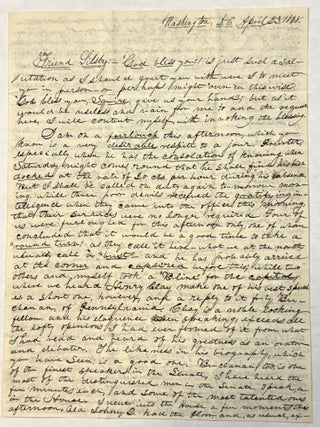 Washington, D.C. April 23, 1841.
Friend Selby:— "God bless you!" is just such a Sal-
utation as I should greet you with were I to meet
you in person— or perhaps I might run in this wise
"God bless you, Squire, give us your hand;" but as it
would be useless and vain for me to ask the request
here, I will content myself with invoking the blessing.
I am on a furlough this afternoon, which you
know is a very desirable respite to a jour. Printer
especially when he has the consolation of knowing when
Saturday night comes round that he shall find his bill
docked at the rate of 20 cts per hour during his absence.
But I shall be called on duty again to-morrow morn-
ing, while three poor devils received the gratifying in-
telligence when they came into the office this morning,
that their services were no longer required. Four of
us were furloughed for this afternoon only, one of whom
concluded that it would be a good time to take a
round turn as they call it here, what we at the north
usually call a "bust" and he has probably arrived
at the corner and capsized before this; while two
others and myself took a B line for the capitol
where we heard Henry Clay make one of his
is a short one, however, and a reply to it by Bu-
chanan, of Pennsylvania. Clay is a noble looking
fellow, and his eloquence when speaking, exceeds
the lofty opinion I had ever formed of it from what
I had read and heard of his greatness as an orator
and debater. The likeness in his biography, which
you have seen, is a good one. Buchanan too is one
of the finest speakers in the Senate. I have heard the
most of the distinguished men in the Senate speak a
few minutes each, and some of the most talented ones
in the House. I went into the House a few moments this
afternoon. Old Johnny Q. had the floor and, as usual, ex-